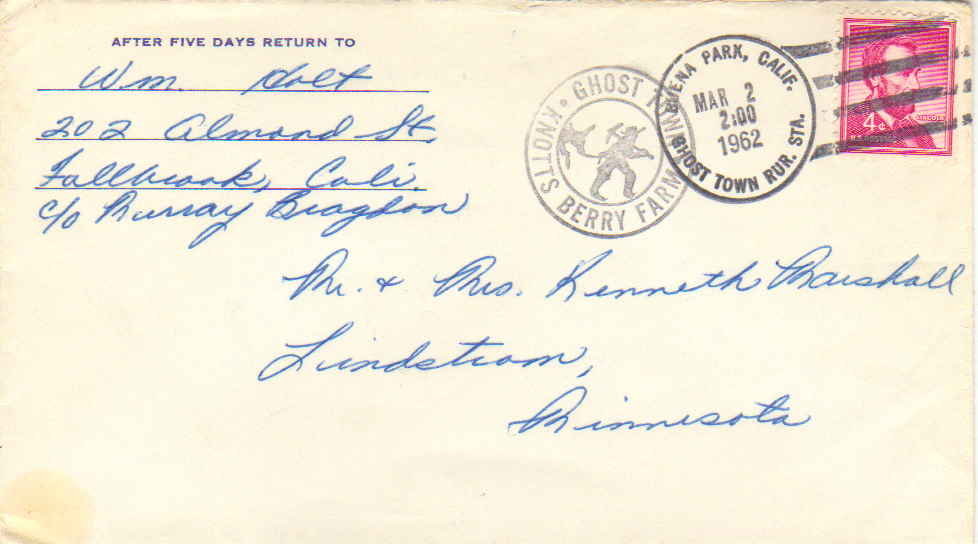 AFTER FIVE DAYS RETURN TO
Wm. Holt
202 Almond St.
Fallbrook, Cali.
c/o Murray Bragdon
KNOTTS BERRY FARM • GHOST TOWN
BUENA PARK, CALIF.
MAR 2
2:00
1962
GHOST TOWN RUR. STA.
4¢
LINCOLN
Mr. & Mrs. Kenneth Marshall
Lindstrom,
Minnesota